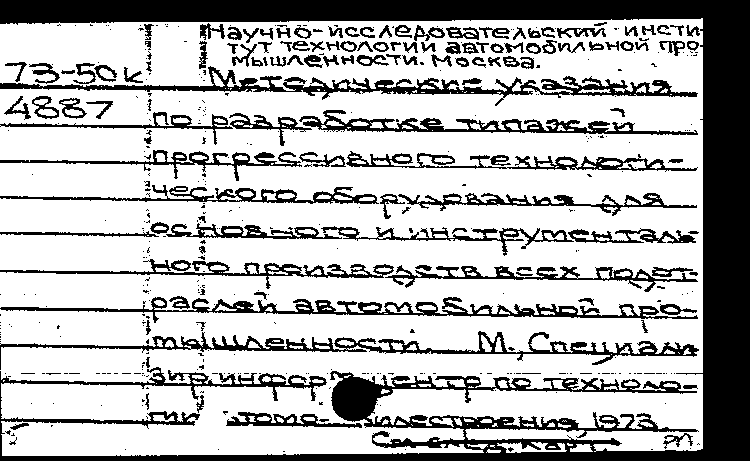 Научно-исследовательский инсти-
тут технологии автомобильной про-
мышленности. Москва.
73-50к Методические указания
4887 по разработке типажей
прогрессивного технологи-
ческого оборудования для
основного и инструменталь-
ного производств всех подот-
раслей автомобильной про-
мышленности. М., Специали-
зир. информ. центр по техноло-
гии 1973.
См. след. карт.